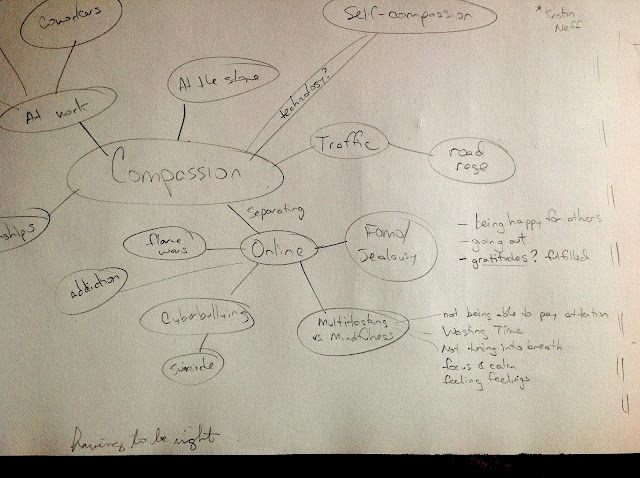 Coworkers
Self-compassion
* Kristin
Neff
At the store
technology?
At work
Traffic
road
rage
Compassion
separating
ships
flame
wars
Online
FOMO/
Jealousy
- being happy for others
- going out
- gratitudes? fulfilled
addiction
Cyberbullying
Multitasking
vs. Mindfulness
not being able to pay attention
Wasting Time
Not tuning into breath
focus & calm
feeling feelings
suicide
having to be right